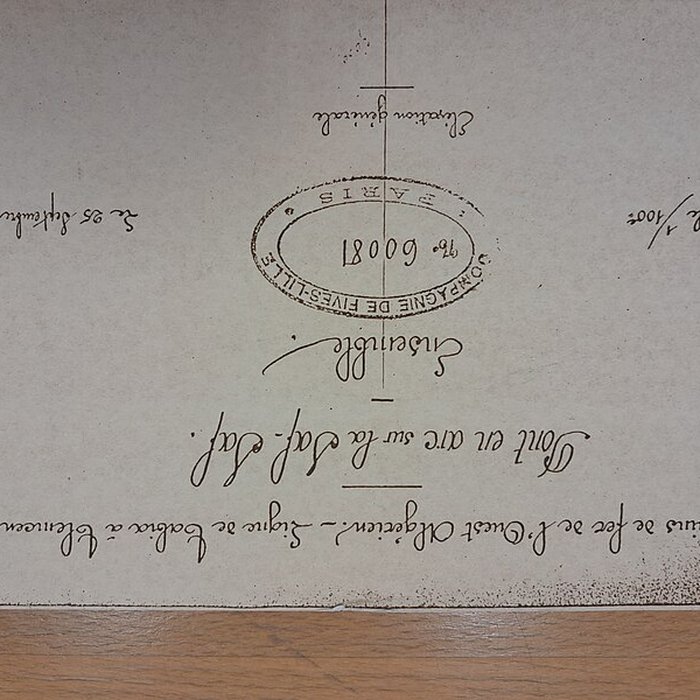 ins de fer de l'Ouest Algérien. – Ligne de Tabia à Tlemcen
Pont en arc sur la Saf-Saf.
Ensemble.
COMPAGNIE DE FIVES-LILLE
No. 60081
PARIS
1/100e
Le 25 Septembre
Elévation générale